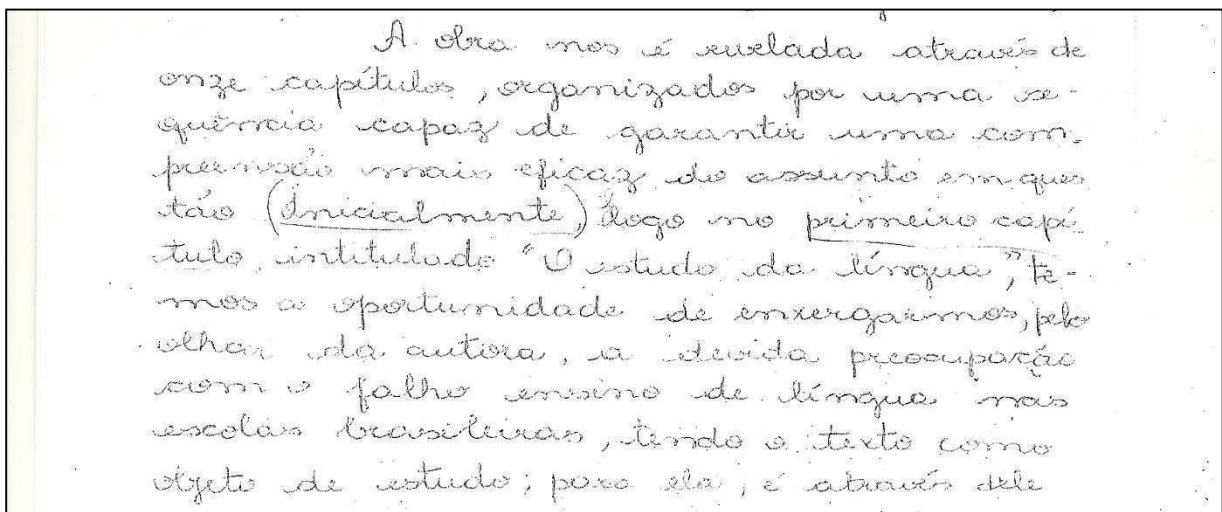 A obra nos é revelada através de
onze capítulos, organizados por uma se-
quência capaz de garantir uma com-
preensão mais eficaz do assunto em ques
tão (Inicialmente) logo no primeiro capí
tulo, intitulado "O estudo da língua", te-
mos a oportunidade de enxergarmos, pelo
olhar da autora, a devida preocupação
com o falho ensino de língua nas
escolas brasileiras, tendo o texto como
objeto de estudo; para ela, é através dele